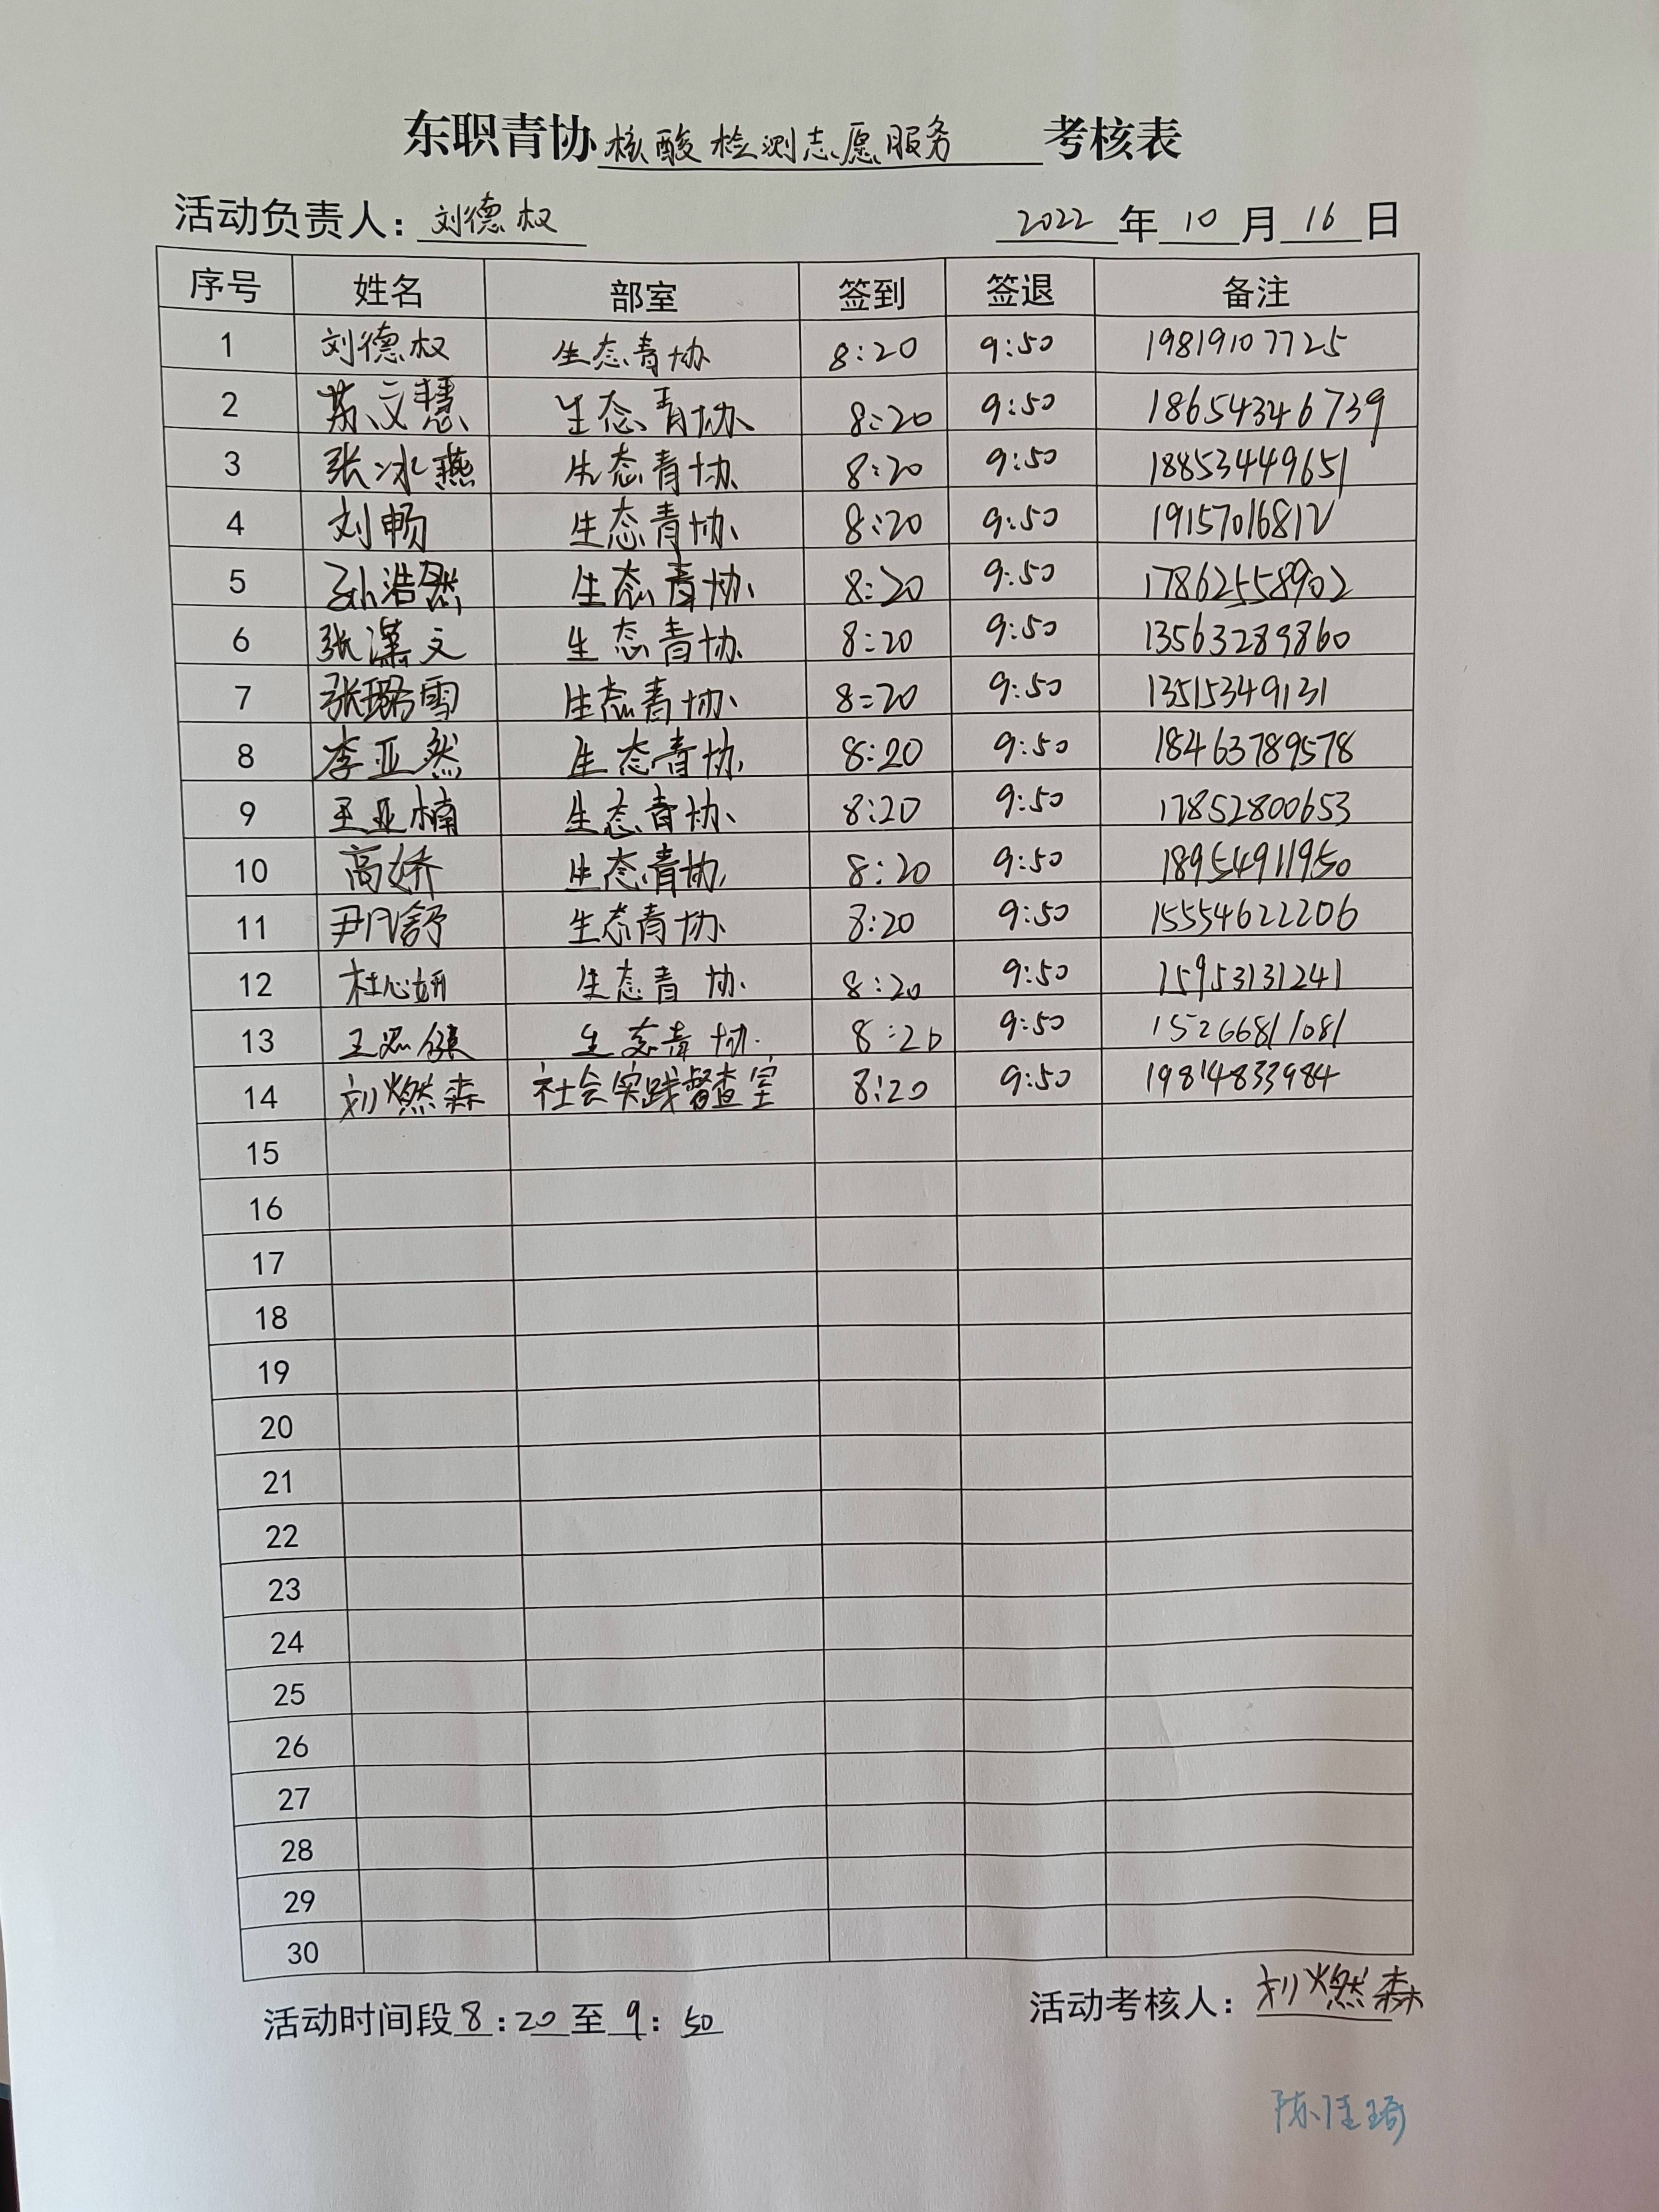 东职青协核酸检测志愿服务考核表
活动负责人：刘德权 2022年10月16日
序号 姓名 部室 签到 签退 备注
1 刘德权 生态青协 8:20 9:50 19819107725
2 苏文慧 生态青协 8:20 9:50 18654346739
3 张冰燕 生态青协 8:20 9:50 18853449651
4 刘畅 生态青协 8:20 9:50 19157016812
5 孙浩然 生态青协 8:20 9:50 17862558902
6 张潇文 生态青协 8:20 9:50 13563289860
7 张璐雪 生态青协 8:20 9:50 13515349131
8 李亚然 生态青协 8:20 9:50 18463789578
9 王亚楠 生态青协 8:20 9:50 17852800653
10 高娇 生态青协 8:20 9:50 18954911950
11 生态青协 8:20 9:50 15554622206
12 杜心妍 生态青协 8:20 9:50 15953131241
13 生态青协 8:20 9:50 15266811081
14 刘燃森 社会实践督查室 8:20 9:50 19814833984
15
16
17
18
19
20
21
22
23
24
25
26
27
28
29
30
活动时间段8:20至9:50 活动考核人：刘燃森
陈佳琦